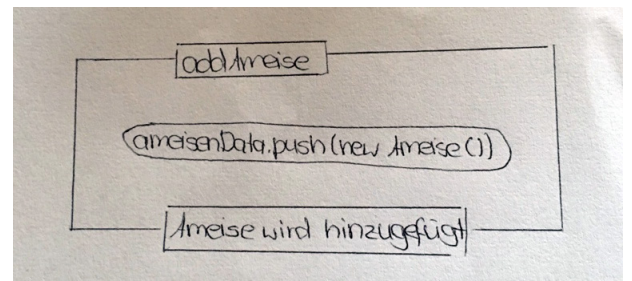 addAmeise
ameisenData.push(new Ameise())
Ameise wird hinzugefügt